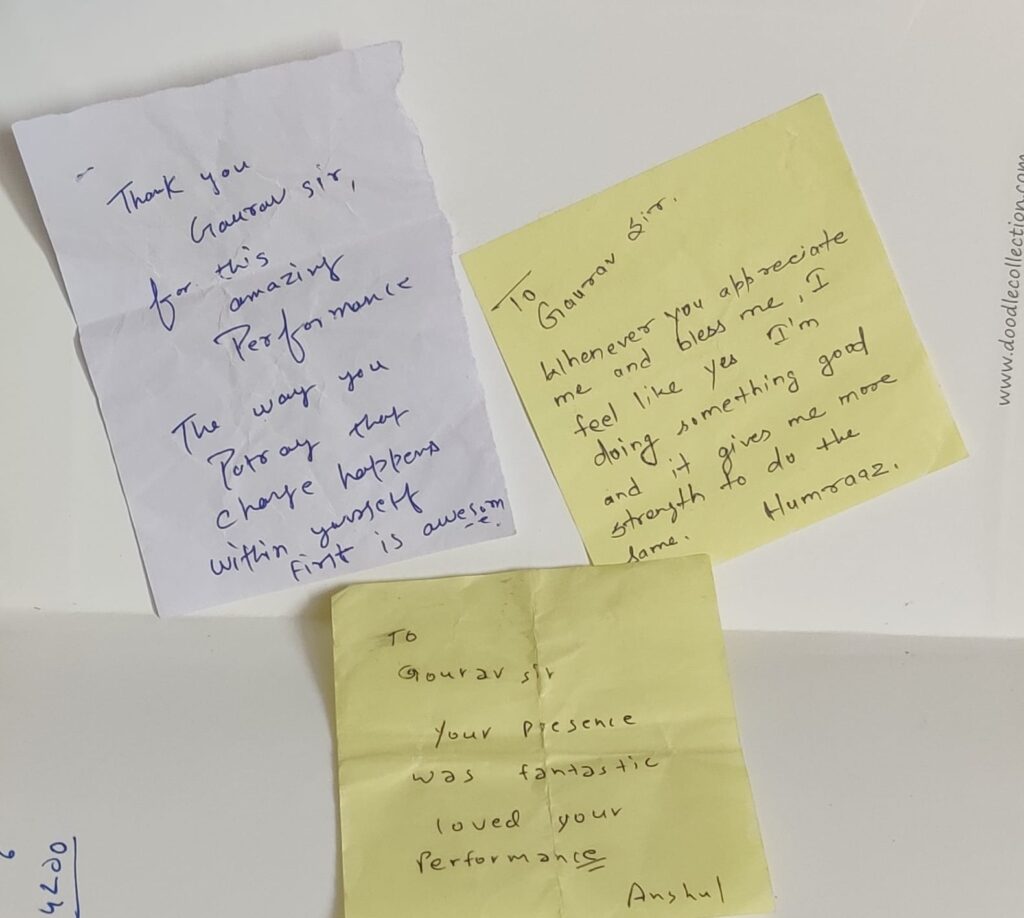 Thank you
Gaurav sir,
for this
amazing
Performance
The way you
Potray that
change happens
within yourself
first is awesome.
To
Gaurav Sir.
Whenever you appreciate
me and bless me, I
feel like yes I'm
doing something good
and it gives me more
strength to do the
same.
Humraaz.
To
Gourav sir
Your presence
was fantastic
loved your
Performance
Anshul
www.doodlecollection.com
4200